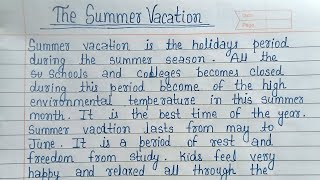 The Summer Vacation
Date
Page
Summer vacation is the holidays period
during the summer season. All the
su schools and colleges becomes closed
during this period become of the high
environmental temperature in this summer
month. It is the best time of the year.
Summer vacation lasts from may to
June. It is a period of rest and
freedom from study. Kids feel very
happy and relaxed all through the